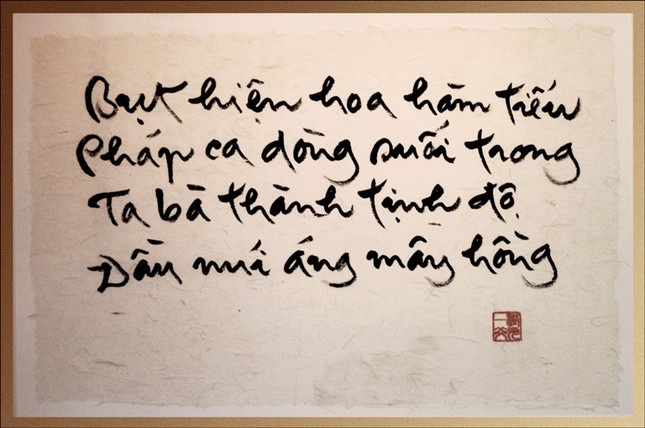 Bụt hiện hoa hàm tiếu
Pháp ca dòng suối trong
Ta bà thành tịnh độ
Đầu núi áng mây hồng